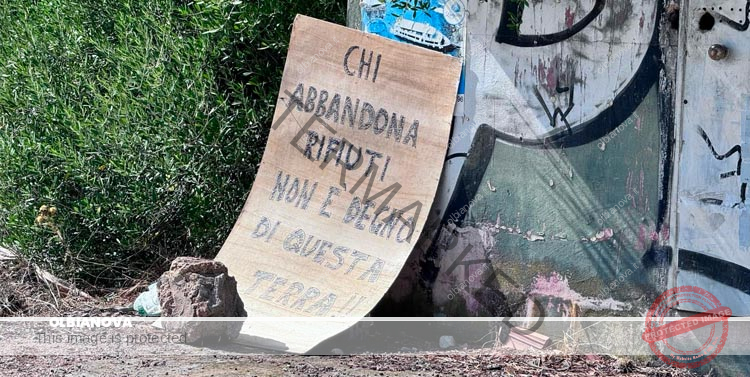 CHI
ABBANDONA
RIFIUTI
NON E DEGNO
DI QUESTA
TERRA!!
WATERMARKED
OLBIANOVA
This image is protected
PROTECTED IMAGE